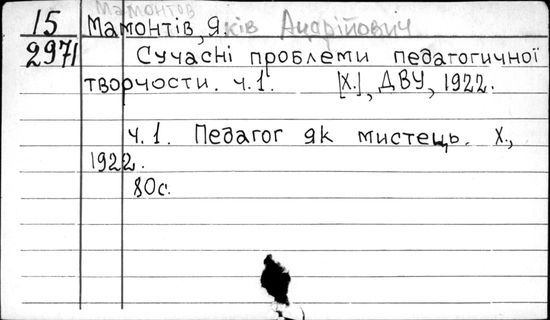 Мамонтов
15 Мамонтів, Яків Андрійович
2971 Сучасні проблеми педагогичної
творчости. ч.1. [Х.], ДВУ, 1922.
ч.1. Педагог як мистець. Х.,
1922.
80с.